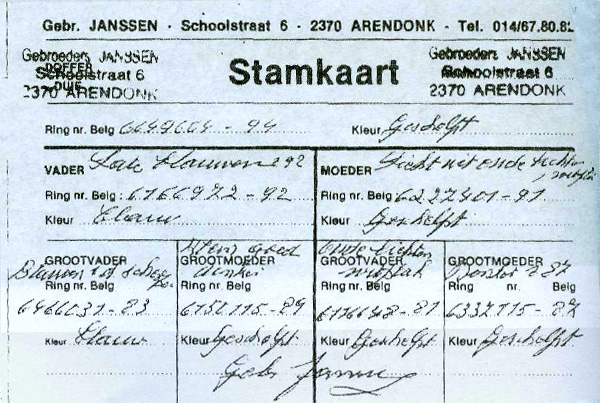 Gebr. JANSSEN - Schoolstraat 6 - 2370 ARENDONK - Tel. 014/67.80.82
Gebroeders JANSSEN
DOFFER
Schoolstraat 6
DUIF
2370 ARENDONK
Stamkaart
Gebroeders JANSSEN
Schoolstraat 6
2370 ARENDONK
Ring nr. Belg
- 94
Kleur Geschelpt
VADER Late Blauwen 292
Ring nr. Belg : 6166972 - 92
Kleur Blauw
MOEDER
Ring nr. Belg 6227401 - 91
Kleur Geschelpt
GROOTVADER
Ring nr. Belg
6466031 - 83
Kleur Blauw
GROOTMOEDER
Ring nr. Belg
6152115 - 89
Kleur Geschelpt
Oude Lichten
GROOTVADER
Ring nr. Belg
6176648 - 81
Kleur Geschelpt
GROOTMOEDER
Ring nr. Belg
6332715 - 87
Kleur Geschelpt
Gebr Janssen